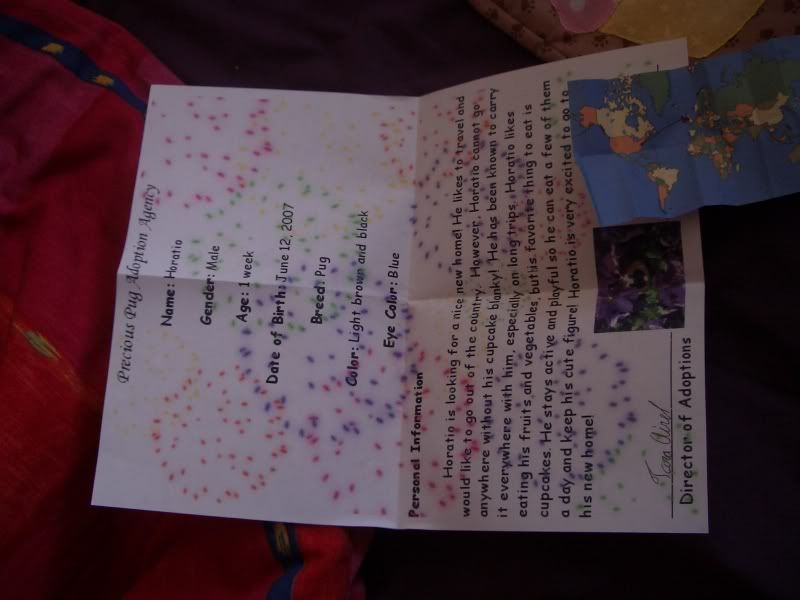 Precious Pug Adoption Agency
Name: Horatio
Gender: Male
Age: 1 week
Date of Birth: June 12, 2007
Breed: Pug
Color: Light brown and black
Eye Color: Blue
Personal Information
Horatio is looking for a nice new home! He likes to travel and
would like to go out of the country. However, Horatio cannot go
anywhere without his cupcake blanky! He has been known to carry
it everywhere with him, especially on long trips. Horatio likes
eating his fruits and vegetables, but his favorite thing to eat is
cupcakes. He stays active and playful so he can eat a few of them
a day and keep his cute figure! Horatio is very excited to go to
his new home!
Director of Adoptions